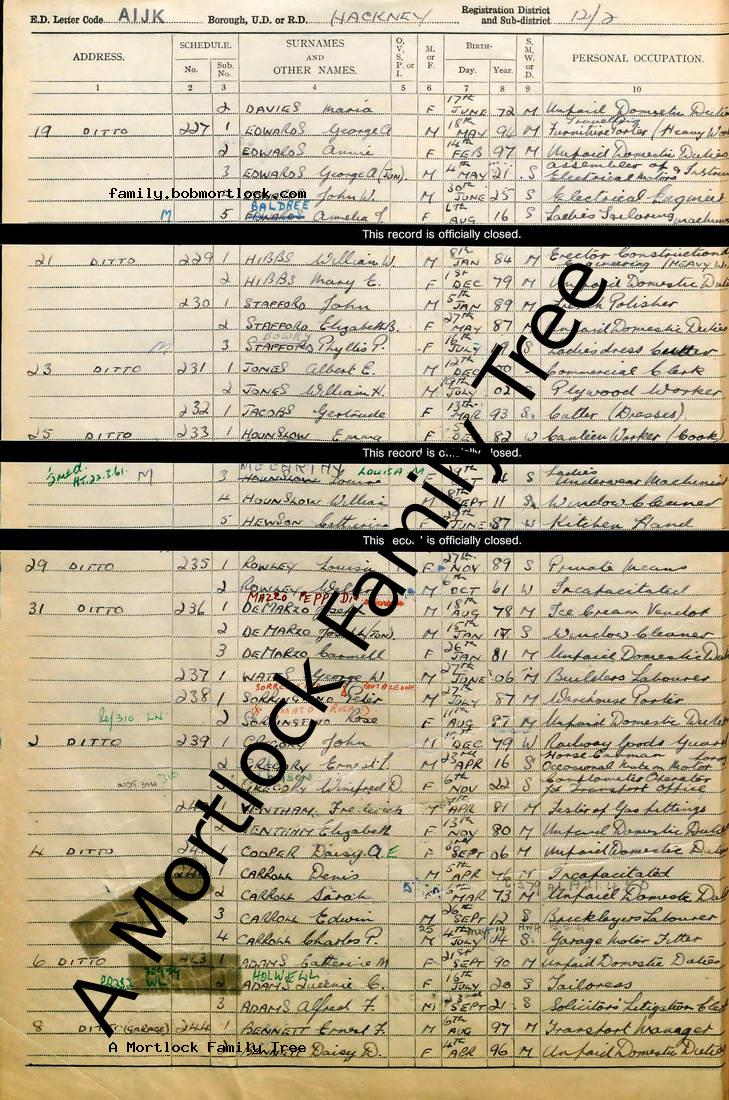 E.D. Letter Code AIJK Borough, U.D. or R.D. HACKNEY Registration District and Sub-district 12/2
ADDRESS. SCHEDULE. No. Sub. No. SURNAMES AND OTHER NAMES. O, V, S, P. or I. M. or F. BIRTH- Day. Year. S. M. W. or D. PERSONAL OCCUPATION.
1 2 3 4 5 6 7 8 9 10
2 DAVIES Maria F 17th JUNE 72 M Unpaid Domestic Duties
19 DITTO 227 1 EDWARDS George A M 18th MAY 94 M Furniture Porter (Heavy Wor
2 EDWARDS Annie F 14th FEB 97 M Unpaid Domestic Duties
3 EDWARDS George A (Jun). M 4th MAY 21 S Assembler of Electrical Motors & Instrum
family.bobmortlock.com John W. M 30th JUNE 25 S Electrical Engineer
M 5 EDWARDS BALDREE Amelia F AUG 16 S Ladies Tailoring machinist
This record is officially closed.
21 DITTO 229 1 HIBBS William W. M 8th JAN 84 M Erector Constructional Engineering (HEAVY W.
2 HIBBS Mary E. F 1st DEC 79 M Unpaid Domestic Duties
230 1 STAFFORD John M 5th JAN 89 M French Polisher
2 STAFFORD Elizabeth B. F 27th MAY 87 M Unpaid Domestic Duties
M 3 STAFFORD BOWRY Phyllis P. F 16th JULY S Ladies dress Cutter
23 DITTO 231 1 JONES Albert E. M 12th DEC Commercial Clerk
2 JONES William H. M 19th JULY 02 M Plywood Worker
232 1 JACOBS Gertrude F 13th MAR 93 S. Cutter (Dresses)
25 DITTO 233 1 HOUNSLOW Emma F DEC 82 W Canteen Worker (Cook)
This record is officially closed.
M 3 HOUNSLOW McCARTHY Louisa LOUISA M F OCT S Ladies Underwear Machinist
4 HOUNSLOW William M SEPT 11 S Window Cleaner
5 HEWSON Catherine F 29th JUNE 87 W Kitchen Hand
This record is officially closed.
29 DITTO 235 1 ROWLEY Louisa F 27th NOV 89 S Private Means
2 ROWLEY M 6th OCT 61 W Incapacitated
31 DITTO 236 1 DEMARZO M 18th AUG 78 M Ice Cream Vendor
2 DEMARZO (JUN). M 15th JAN 17 S Window Cleaner
3 DEMARZO Carmell F 26th JAN 81 M Unpaid Domestic Duties
237 1 George W M 27th JUNE 06 M Builders Labourer
238 1 M 27th JULY 87 M Warehouse Porter
2 Rose F AUG 87 M Unpaid Domestic Duties
2 DITTO 239 1 GREGORY John DEC 79 W Railway Goods Guard
2 GREGORY Ernest L. M 23rd APR 16 S Occasional
3 GREGORY Winifred D F 6th NOV 22 S Comptometer Operator Transport Office
1 VENTHAM Frederick M APR 81 M Tester of Gas fittings
2 VENTHAM Elizabeth F 13th NOV 80 M Unpaid Domestic Duties
4 DITTO 1 COOPER Daisy Q E F SEPT 06 M Unpaid Domestic Duties
CARROLL Denis M APR 76 M Incapacitated
2 CARROLL Sarah F 6th MAR 73 M Unpaid Domestic
3 CARROLL Edwin M 26th SEPT 12 S Bricklayers Labourer
4 CARROLL Charles P. M 4th JULY 14 S Garage Motor Fitter
6 DITTO 243 1 ADAMS Catherine M F 21st SEPT 90 M Unpaid Domestic Duties
2 ADAMS HOLWELL Queenie C. F 16th JULY 20 S Tailoress
3 ADAMS Alfred F. M SEPT 21 S Solicitors' Litigation Clerk
8 DITTO (GARAGE) 244 1 BENNETT Ernest F. M 6th AUG 97 M Transport Manager
BENNETT Daisy D. F 4th APR 96 M Unpaid Domestic Duties
A Mortlock Family Tree
A Mortlock Family Tree